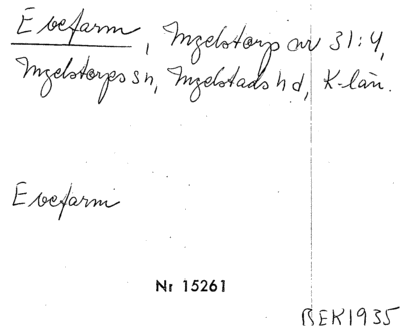 Evefarm, Ingelstorp nr 31:4,
Ingelstorps sn, Ingelstads hd, K-län.
Evefarm
Nr 15261
BEK1935